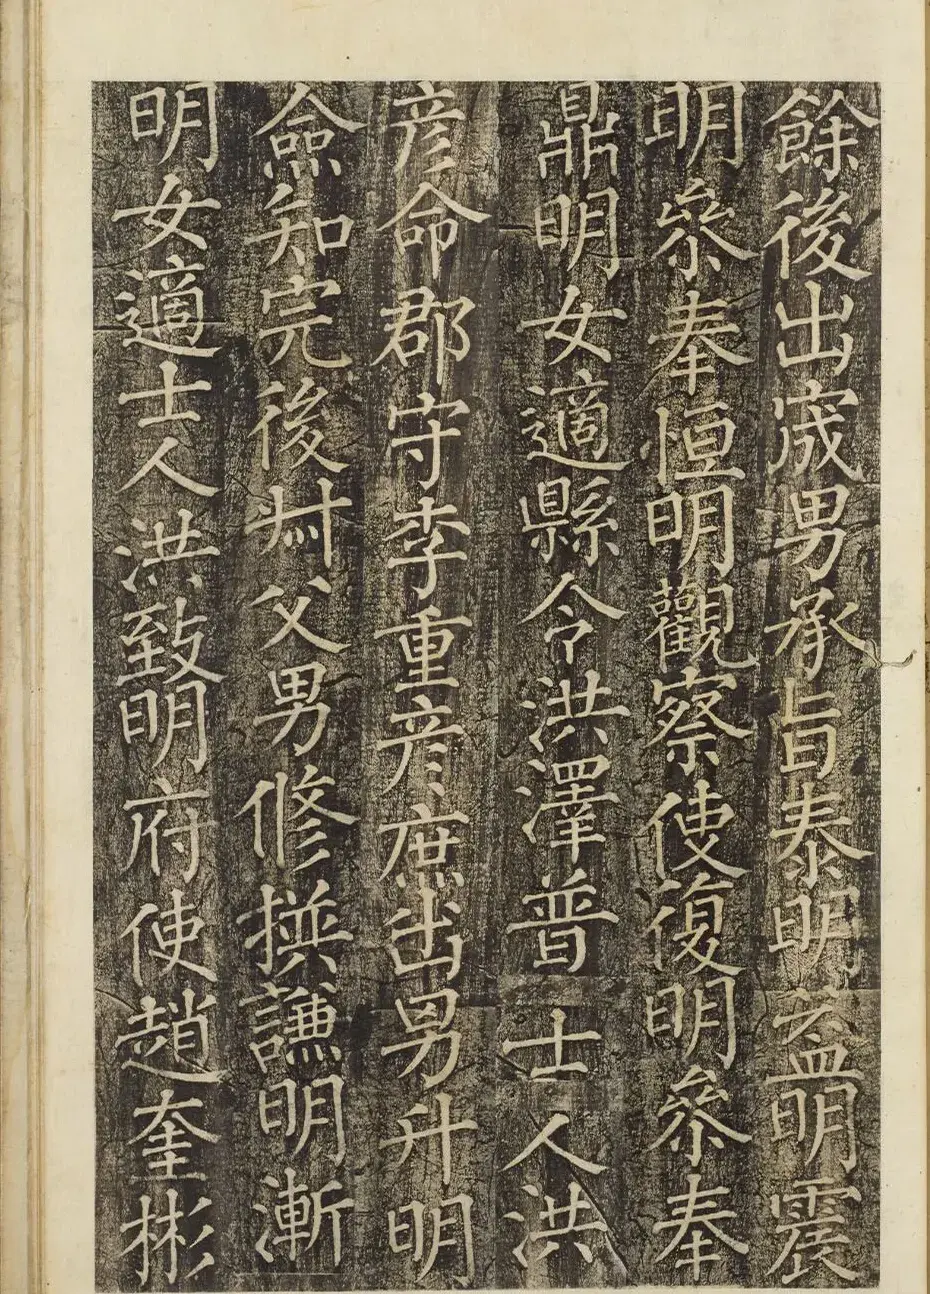 餘後出宬男承旨泰明益明震
明叅奉恒明觀察使復明叅奉
鼎明女適縣令洪澤普士人洪
彦命郡守李重彦庶出男升明
僉知完後叔父男修撰謙明漸
明女適士人洪致明府使趙奎彬